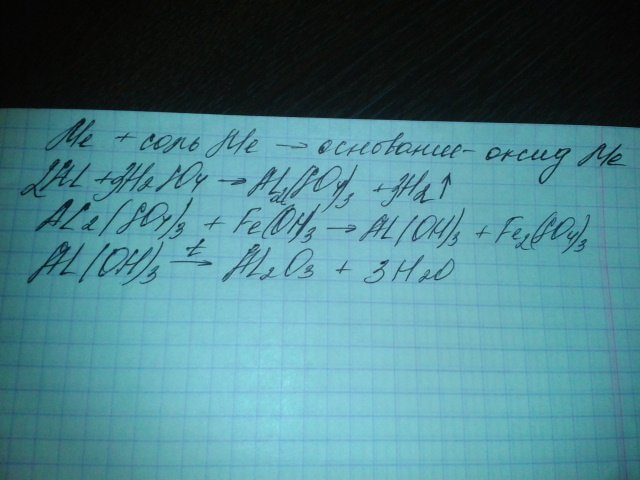 Me + соль Me → основание - оксид Me
2Al + 3H2SO4 → Al2(SO4)3 + 3H2↑
Al2(SO4)3 + Fe(OH)3 → Al(OH)3 + Fe2(SO4)3
Al(OH)3 t→ Al2O3 + 3H2O